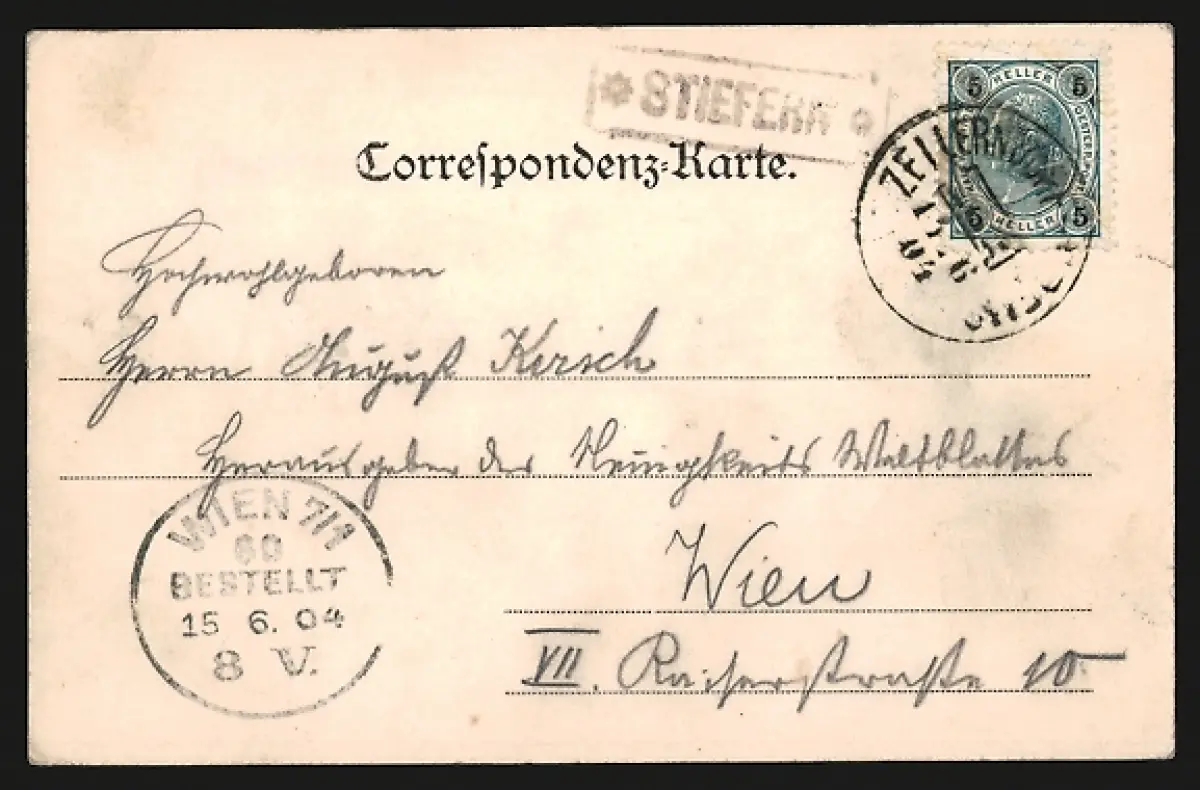 * STIEFERN *
Correspondenz-Karte.
5 HELLER 5
5 HELLER 5
ZELLERNDORF
04
Hochwohlgeboren
Herrn August Kirsch
Herausgeber des Neuigkeits Weltblattes
Wien
VII. Kaiserstraße 10
WIEN 7/1
60
BESTELLT
15 6. 04
8 V.